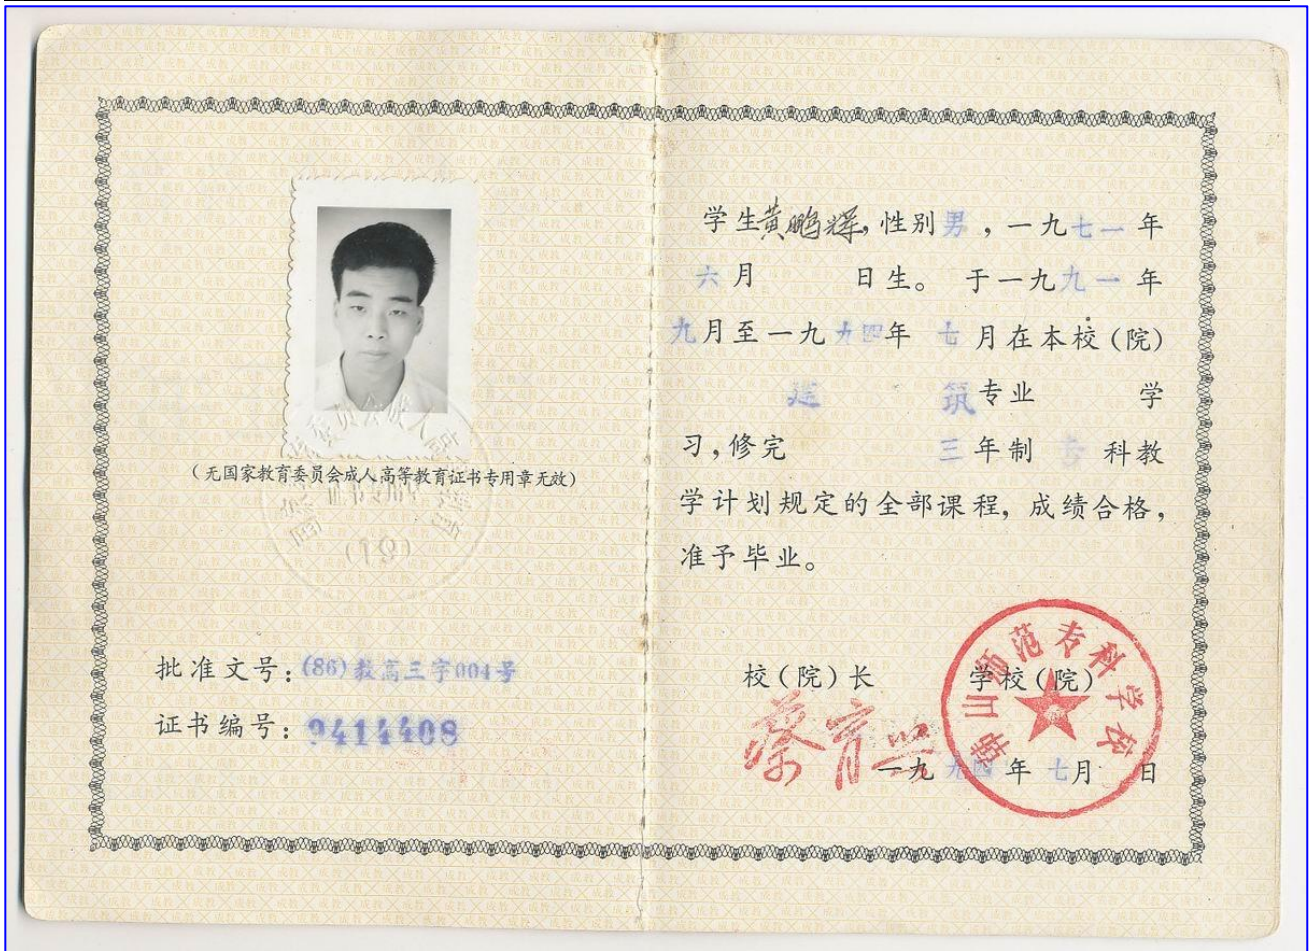 （无国家教育委员会成人高等教育证书专用章无效）
批准文号：(86)教高三字004号
证书编号：9414408
学生黄鹏辉，性别男，一九七一年
六月 日生。于一九九一年
九月至一九九四年 七月在本校（院）
建 筑专业 学
习，修完 三年制 专科教
学计划规定的全部课程，成绩合格，
准予毕业。
校（院）长 学校（院）
蔡育兴
一九九四年七月 日
韩山师范专科学校